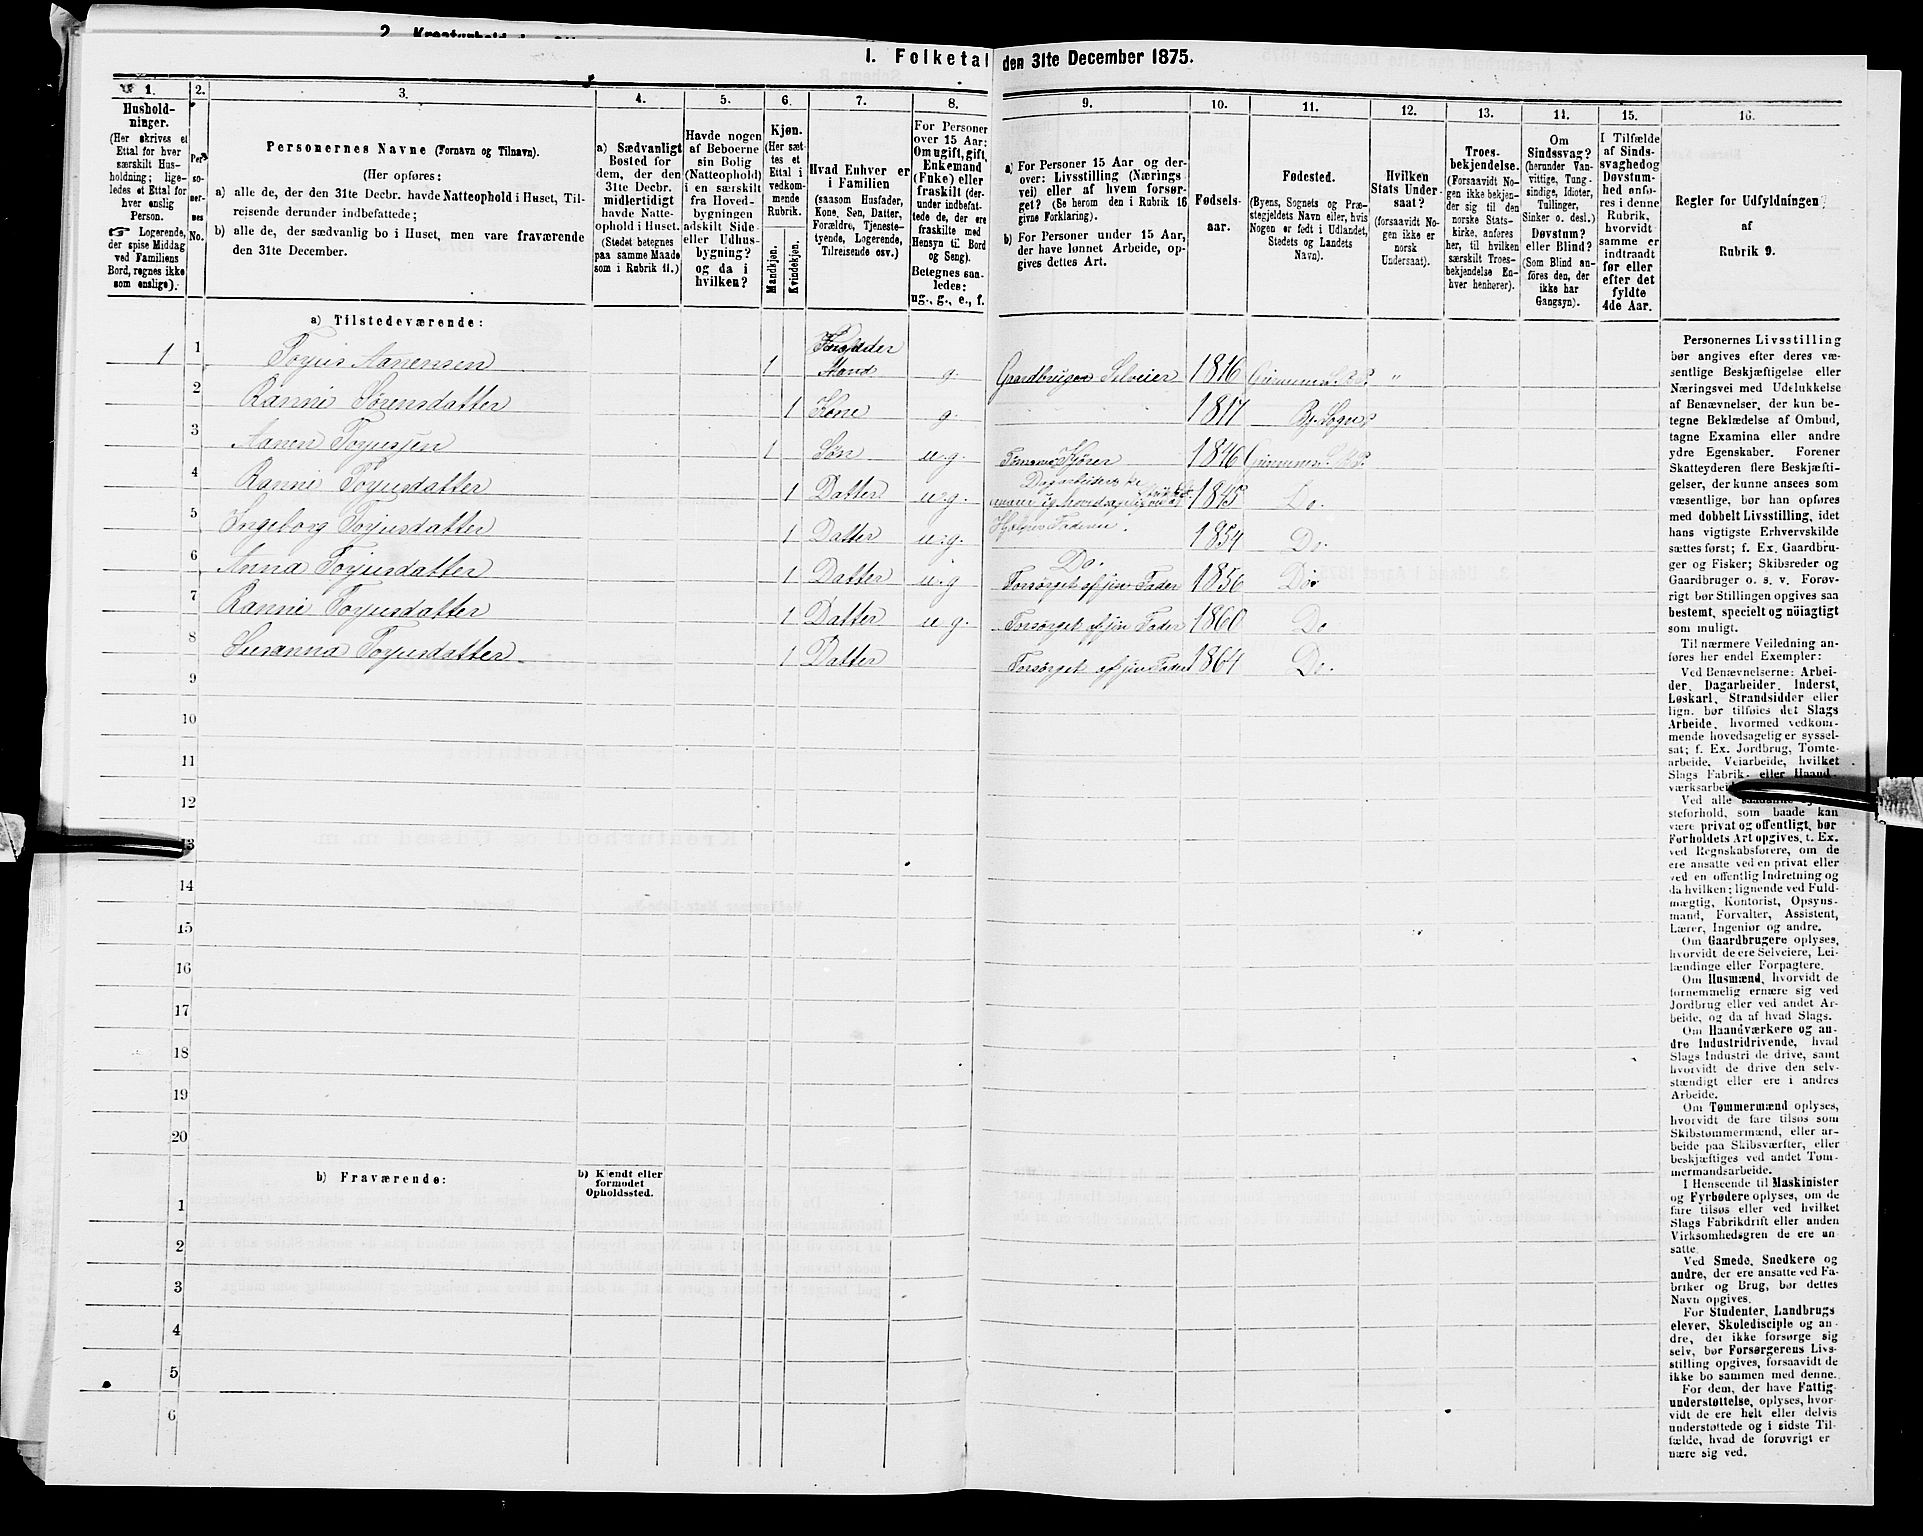 2. Kreaturhold
I. Folketal den 31te December 1875.
1.
2.
3.
4.
5.
6.
7.
8.
9.
10.
11.
12.
13.
14.
15.
16.
Hushold-
ninger.
(Her skrives et
Ettal for hver
særskilt Hus-
holdning; lige-
ledes et Ettal for
hver enslig
Person.
☞ Logerende,
der spise Middag
ved Familiens
Bord, regnes ikke
som enslige).
Per-
so-
ner-
nes
No.
Personernes Navne (Fornavn og Tilnavn).
(Her opføres:
a) alle de, der den 31te Decbr. havde Natteophold i Huset, Til-
reisende derunder indbefattede;
b) alle de, der sædvanlig bo i Huset, men vare fraværende
den 31te December.
a) Sædvanligt
Bosted for
dem, der den
31te Decbr.
midlertidigt
havde Natte-
ophold i Huset.
(Stedet betegnes
paa samme Maade
som i Rubrik 11.)
Havde nogen
af Beboerne
sin Bolig
(Natteophold)
i en særskilt
fra Hoved-
bygningen
adskilt Side-
eller Udhus-
bygning?
og da i
hvilken?
Kjøn.
(Her sæt-
tes et
Ettal i
vedkom-
mende
Rubrik.
Mandkjøn.
Kvindekjøn.
Hvad Enhver er
i Familien
(saasom Husfader,
Kone, Søn, Datter,
Forældre, Tjeneste-
tyende, Logerende,
Tilreisende osv.)
For Personer
over 15 Aar:
Om ugift, gift,
Enkemand
(Enke) eller
fraskilt (der-
under indbefat-
tede de, der ere
fraskilte med
Hensyn til Bord
og Seng).
Betegnes saa-
ledes:
ug., g., e., f.
a) For Personer 15 Aar og der-
over: Livsstilling (Nærings-
vei) eller af hvem forsør-
get? (Se herom den i Rubrik 16
givne Forklaring).
b) For Personer under 15 Aar,
der have lønnet Arbeide, op-
gives dettes Art.
Fødsels-
aar.
Fødested.
(Byens, Sognets og Præ-
stegjeldets Navn eller, hvis
Nogen er født i Udlandet,
Stedets og Landets
Navn).
Hvilken
Stats Under-
saat?
(forsaavidt No-
gen ikke er
norsk
Undersaat).
Troes-
bekjendelse.
(Forsaavidt No-
gen ikke bekjen-
der sig til den
norske Stats-
kirke, anføres
her, til hvilken
særskilt Troes-
bekjendelse En-
hver henhører).
Om
Sindssvag?
(herunder Van-
vittige, Tung-
sindige, Idioter,
Tullinger,
Sinker o. desl.)
Døvstum?
eller Blind?
(Som Blind an-
føres den, der
ikke har
Gangsyn).
I Tilfælde
af Sinds-
svaghed og
Døvstum-
hed anfø-
res i denne
Rubrik,
hvorvidt
samme er
indtraadt
før eller
efter det
fyldte
4de Aar.
Regler for Udfyldningen
af
Rubrik 9.
a) Tilstedeværende:
1 1 Torjus Aanensen 1 Mand g. Gaardbruger Selveier 1816 "
2 Ranni Sørensdatter 1 Kone g. 1817
3 Aanen Torjussen 1 Søn u.g. 1846
4 Ranni Torjusdatter 1 Datter u.g. 1845 Do.
5 Ingeborg Torjusdatter 1 Datter u.g. Hjelper Faderen. 1854 Do.
6 Anna Torjusdatter 1 Datter u.g Do. Forsørget af sin Fader 1856 Do
7 Ranni Torjusdatter 1 Datter u.g. Forsørget af sin Fader 1860 Do
8 Susanna Torjusdatter 1 Datter Forsørget af sin Fader 1864 Do.
9
10
11
12
13
14
15
16
17
18
19
20
b) Fraværende:
b) Kjendt eller
formodet
Opholdssted.
1
2
3
4
5
6
Personernes Livsstilling
bør angives efter deres væ-
sentlige Beskjæftigelse eller
Næringsvei med Udelukkelse
af Benævnelser, der kun be-
tegne Beklædelse af Ombud,
tagne Examina eller andre
ydre Egenskaber. Forener
Skatteyderen flere Beskjæfti-
gelser, der kunne ansees som
væsentlige, bør han opføres
med dobbelt Livsstilling, idet
hans vigtigste Erhvervskilde
sættes først; f. Ex. Gaardbru-
ger og Fisker; Skibsreder og
Gaardbruger o. s. v. Forøv-
rigt bør Stillingen opgives saa
bestemt, specielt og nöiagtigt
som muligt.
Til nærmere Veiledning an-
føres her endel Exempler:
Ved Benævnelserne: Arbei-
der, Dagarbeider, Inderst,
Løskarl, Strandsidder eller
lign. bør tilføies det Slags
Arbeide, hvormed vedkom-
mende hovedsagelig er syssel-
sat; f. Ex. Jordbrug, Tomte-
arbeide, Veiarbeide, hvilket
Slags Fabrik- eller Haand-
værksarbei
Ved alle
steforhold, som baade kan
være privat og offentligt, bør
Forholdets Art opgives, t. Ex.
ved Regnskabsførere, om de
ere ansatte ved en privat eller
ved en offentlig Indretning og
da hvilken; lignende ved Fuld-
mægtig, Kontorist, Opsyns-
mand, Forvalter, Assistent,
Lærer, Ingeniør og andre.
Om Gaardbrugere oplyses,
hvorvidt de ere Selveiere, Lei-
lændinge eller Forpagtere.
Om Husmænd, hvorvidt de
fornemmelig ernære sig ved
Jordbrug eller ved andet Ar-
beide, og da af hvad Slags.
Om Haandværkere og an-
dre Industridrivende, hvad
Slags Industri de drive, samt
hvorvidt de drive den selv-
stændigt eller ere i andres
Arbeide.
Om Tømmermænd oplyses,
hvorvidt de fare tilsøs som
Skibstømmermænd, eller ar-
beide paa Skibsværfter, eller
beskjæftiges ved andet Tøm-
mermandsarbeide.
I Henseende til Maskinister
og Fyrbødere oplyses, om de
fare tilsøs eller ved hvilket
Slags Fabrikdrift eller anden
Virksomhedsgren de ere an-
satte.
Ved Smede, Snedkere og
andre, der ere ansatte ved Fa-
briker og Brug, bør dettes
Navn opgives.
For Studenter, Landbrugs-
elever, Skoledisciple og an-
dre, der ikke forsørge sig
selv, bør Forsørgerens Livs-
stilling opgives, forsaavidt de
ikke bo sammen med denne.
For dem, der have Fattig-
understøttelse, oplyses, hvor-
vidt de ere helt eller delvis
understøttede og i sidste Til-
fælde, hvad de forøvrigt er-
nære sig ved.